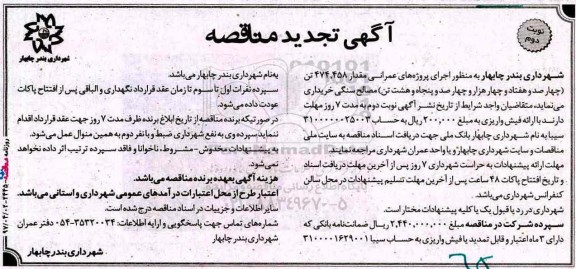 آگهی تجدید مناقصه
نوبت دوم
شهرداری بندر چابهار
شهرداری بندر چابهار به منظور اجرای پروژه‌های عمرانی مقدار ۴۷۴،۴۵۸ تن
(چهار صد و هفتاد و چهار هزار و چهار صد و پنجاه و هشت تن) مصالح سنگی خریداری
می نماید، متقاضیان واجد شرایط از تاریخ نشر آگهی نوبت دوم به مدت ۷ روز مهلت
دارند با ارائه فیش واریزی به مبلغ ۲۰۰،۰۰۰ ریال به حساب ۳۱۰۰۰۰۰۰۲۵۰۰۳
سیبا به نام شهرداری چابهار بانک ملی جهت دریافت اسناد مناقصه به سایت ملی
مناقصات و سایت شهرداری چابهار و یا واحد عمران شهرداری مراجعه نمایند
مهلت ارائه پیشنهادات به حراست شهرداری ۷ روز پس از آخرین مهلت دریافت اسناد
و تاریخ افتتاح پاکات ۴۸ ساعت پس از آخرین مهلت تسلیم پیشنهادات در محل سالن
کنفرانس شهرداری می‌باشد.
شهرداری در رد یا قبول یک یا کلیه پیشنهادات مختار است.
سپرده شرکت در مناقصه مبلغ ۲،۴۴۰،۰۰۰،۰۰۰ ریال ضمانت‌نامه بانکی که
دارای ۳ ماه اعتبار و قابل تمدید یا فیش واریزی به حساب سیبا ۳۱۰۰۰۰۱۶۲۹۰۰۱
به‌نام شهرداری بندر چابهار می‌باشد.
سپرده نفرات اول تا سوم تا زمان عقد قرارداد نگهداری و الباقی پس از افتتاح پاکات
عودت داده می‌شود.
در صورتیکه برنده مناقصه از تاریخ ابلاغ برنده ظرف مدت ۷ روز جهت عقد قرارداد اقدام
ننماید سپرده وی به نفع شهرداری ضبط و با نفر دوم به همین منوال عمل می‌شود.
به پیشنهادات مخدوش - مشروط، ناخوانا و فاقد سپرده ترتیب اثر داده نخواهد
شد.
هزینه آگهی بعهده برنده مناقصه می‌باشد.
اعتبار طرح از محل اعتبارات درآمدهای عمومی شهرداری و استانی می‌باشد.
سایر اطلاعات و جزییات در اسناد مناقصه درج شده است.
شماره‌های تماس جهت پاسخگویی و ارایه اطلاعات: ۳۵۳۲۰۰۳۴-۰۵۴ دفتر عمران
شهرداری بندر چابهار
شهرداری بندر چابهار